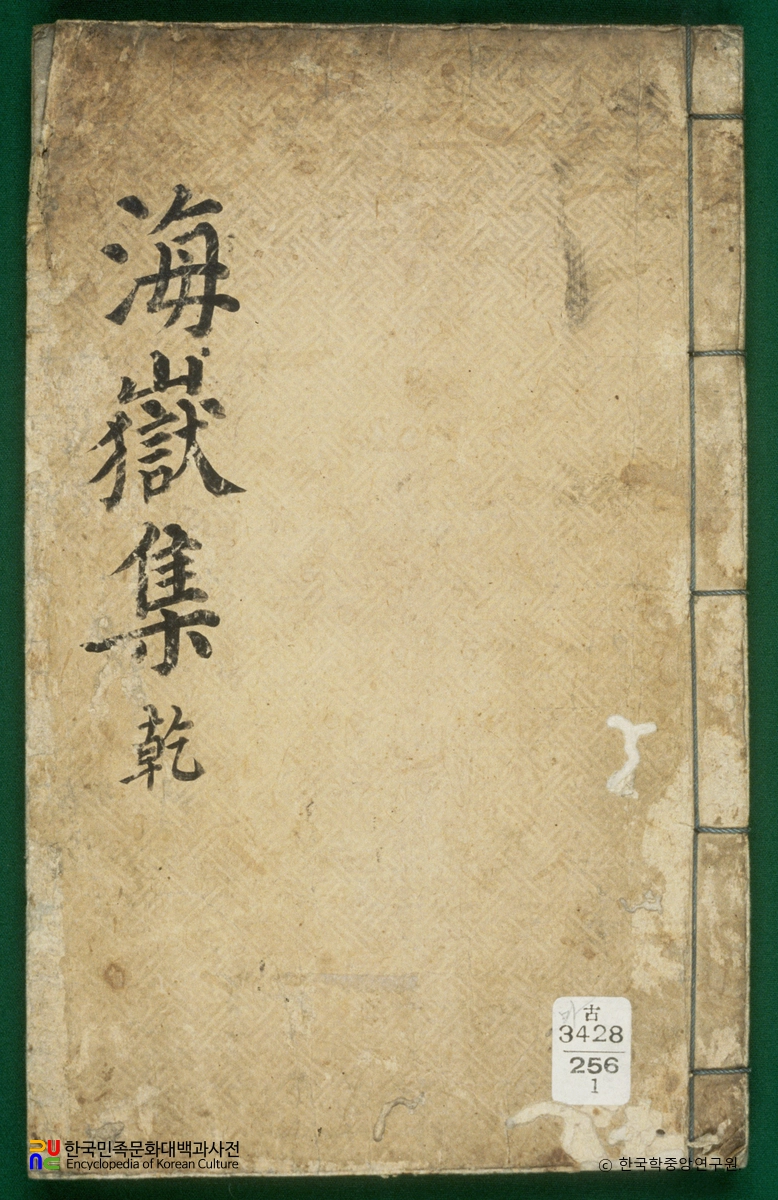 海嶽集 乾
古
3428
256
1
한국민족문화대백과사전
Encyclopedia of Korean Culture
© 한국학중앙연구원